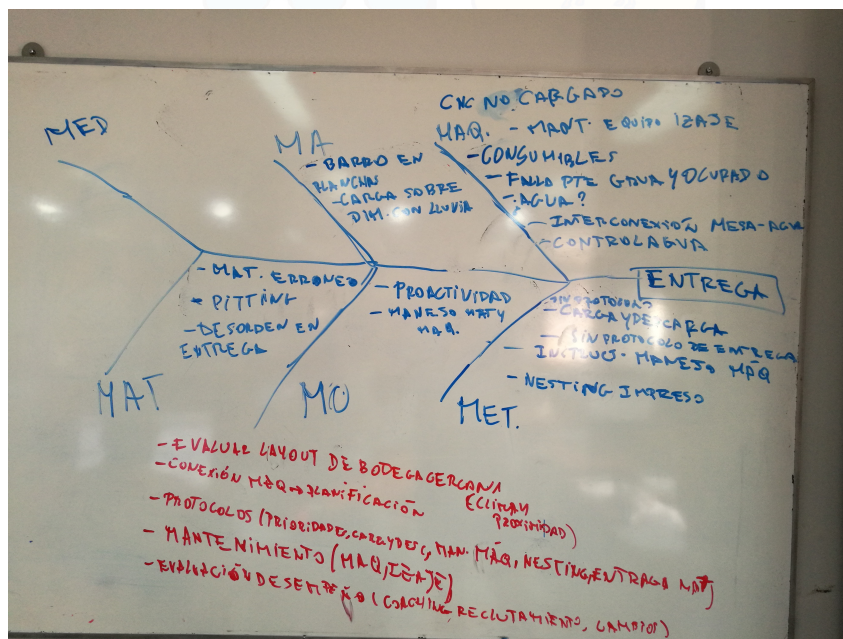 MED
MA
- BARRO EN
PLANCHAS
- CARGA SOBRE
DIM. CON LLUVIA
CNC NO CARGADO
MAQ. - MANT. EQUIPO IZAJE
- CONSUMIBLES
- FALLA PTE GRUA Y OCUPADO
- AGUA?
- INTERCONEXIÓN MESA-AGUA
- CONTROL AGUA
ENTREGA
- MAT. ERRONEO
- PITTING
- DESORDEN EN
ENTREGA
MAT
- PROACTIVIDAD
- MANEJO MAT Y
MAQ.
MO
- SIN PROTOCOLO
- CARGA Y DESCARGA
- SIN PROTOCOLO DE ENTREGA
- INSTRUC. MANEJO MÁQ
- NESTING IMPRESO
MET.
- EVALUAR LAYOUT DE BODEGA CERCANA
(CLIMA Y
PROXIMIDAD)
- CONEXIÓN MÁQ → PLANIFICACIÓN
- PROTOCOLOS (PRIORIDADES, CARG Y DESC, MAN. MÁQ, NESTING, ENTRAGA MAT)
- MANTENIMIENTO (MAQ, IZAJE)
- EVALUACIÓN DESEMPEÑO (COACHING, RECLUTAMIENTO, CAMBIOS)